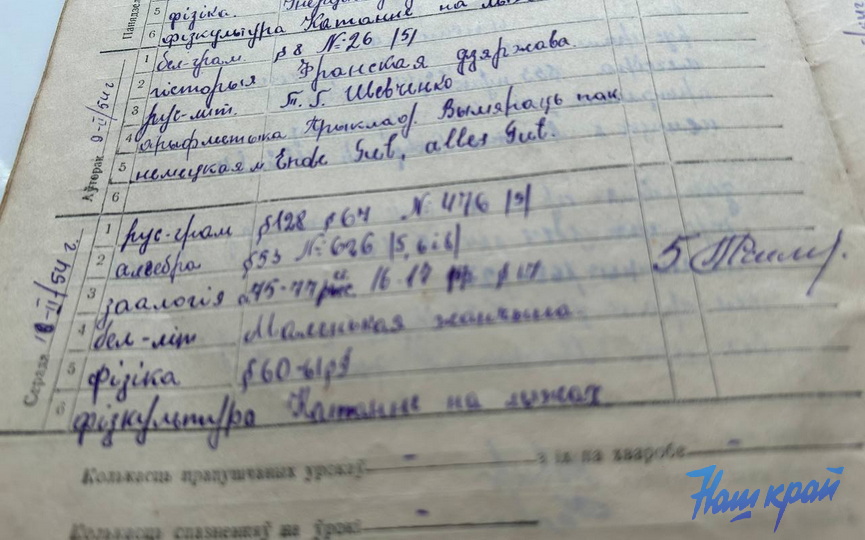 Панядзе
5 фізіка.
6 фізкультура Катание на лыж
Аўторак 9-II/54 г
1 бел-грам §8 № 26 /5/
2 гісторыя Франская дзяржава
3 рус-літ. Т. Г. Шевченко
4 арыфметыка Прыклад. Вымяраць пак
5 немецкая м Ende Gut, alles Gut.
6
Серада 10-II/54 г.
1 рус-грам §128 §64 № 476 /3/
2 алгебра §53 № 626 /5, 6 і в/
3 заалогія 16-17 § 17 5
4 бел-літ Маленькая
5 фізіка §60-61
6 фізкультура Катание на лыжах
Колькасць прапушчаных урокаў - з іх па хваробе -
Колькасць спазненняў на ўрокі -
Наш край